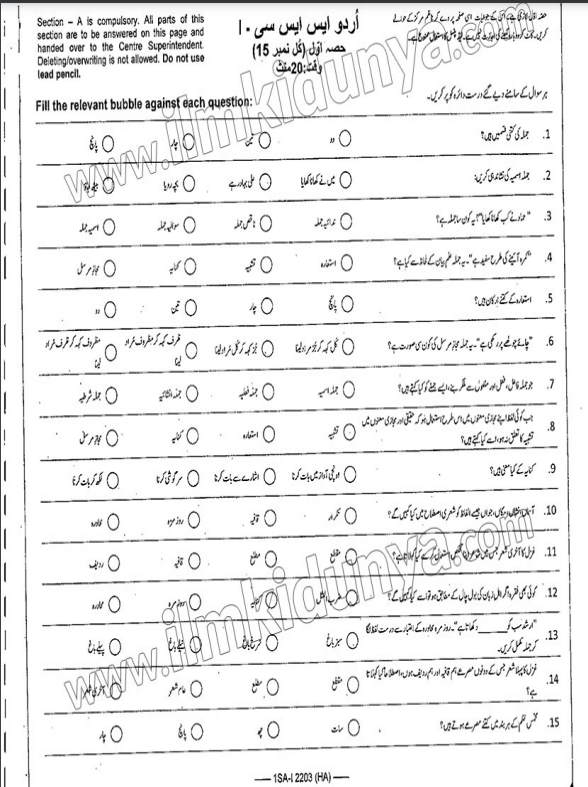 Section – A is compulsory. All parts of
section are to be answered on this page and
handed over to the Centre Superintendent.
Deleting/overwriting is not allowed. Do not use
lead pencil.
اُردو ایس ایس سی۔ I
حصہ اوّل (کُل نمبر 15)
وقت: 20 منٹ
Fill the relevant bubble against each question:
ہر سوال کے سامنے دیے گئے درست دائرہ کو پُر کریں۔
1. جملہ کی کتنی قسمیں ہیں؟
دو تین چار پانچ
2. جملہ اسمیہ کی نشاندہی کریں:
میں نے کھانا کھایا علی بہادر ہے بچہ رویا
3. حماد نے کب کھانا کھایا؟ یہ کون سا جملہ ہے؟
ندائیہ جملہ ناقص جملہ سوالیہ جملہ اسمیہ جملہ
4. "کمرہ آئینے کی طرح سفید ہے"۔ یہ جملہ علم بیان کے لحاظ سے کیا ہے؟
استعارہ تشبیہ کنایہ مجاز مرسل
5. استعارہ کے کتنے ارکان ہیں؟
پانچ چار تین دو
6. "چائے چولھے پر رکھی ہے"۔ یہ جملہ مجاز مرسل کی کون سی صورت ہے؟
کُل کہہ کر جُز مراد لینا جُز کہہ کر کُل مراد لینا ظرف کہہ کر مظروف مراد لینا مظروف کہہ کر ظرف مراد لینا
7. جو جملہ فاعل، فعل اور مفعول سے مل کر بنے، ایسے جملے کو کیا کہتے ہیں؟
جملہ اسمیہ جملہ فعلیہ جملہ انشائیہ جملہ شرطیہ
8. جب کوئی لفظ اپنے مجازی معنوں میں اس طرح استعمال ہو کہ حقیقی اور مجازی معنوں میں
تشبیہ کا تعلق نہ ہو، اسے کیا کہتے ہیں؟
تشبیہ استعارہ کنایہ مجاز مرسل
9. کنایہ کے کیا معنی ہیں؟
اونچی آواز میں بات کرنا اشارے سے بات کرنا سرگوشی کرنا لکھ کر بات کرنا
10. جیسے الفاظ کو شعری اصطلاح میں کیا کہیں گے؟
تکرار قافیہ روزمرہ محاورہ
11. غزل کا آخری شعر جس میں شاعر اپنا تخلص استعمال کرے کیا کہلاتا ہے؟
مقطع مطلع قافیہ ردیف
12. کوئی بھی فقرہ اگر اہل زبان کی بول چال کے مطابق ہو تو اسے کیا کہیں گے؟
ضرب المثل روزمرہ محاورہ
13. "ارشد سب کو _____ دکھاتا ہے"۔ روزمرہ محاورہ کے اعتبار سے درست لفظ لگا
کر جملہ مکمل کریں۔
سبز باغ سرخ باغ نیلے باغ پیلے باغ
14. غزل کا پہلا شعر جس کے دونوں مصرعے ہم قافیہ اور ہم ردیف ہوں، اصطلاحاً کیا کہلاتا
ہے؟
مقطع مطلع عام شعر آخری شعر
15. مخمس نظم کے ہر بند میں کتنے مصرعے ہوتے ہیں؟
سات چھ پانچ چار
— 1SA-I 2203 (HA) —
www.ilmkidunya.com
www.ilmkidunya.com